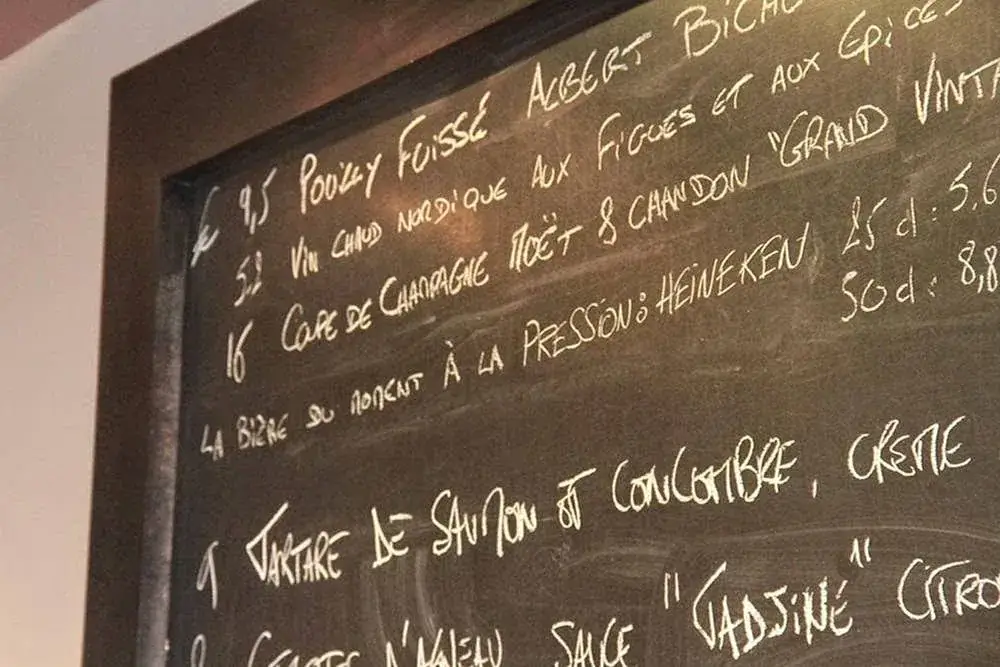 € 9,5 POUILLY FUISSÉ ALBERT BICHO
5,2 VIN CHAUD NORDIQUE AUX FIGUES ET AUX EPICES
16 COUPE DE CHAMPAGNE MOËT & CHANDON "GRAND VINTA
LA BIÈRE DU MOMENT À LA PRESSION: HEINEKEN 25 cl : 5,6
50 cl : 8,8
9 TARTARE DE SAUMON ET CONCOMBRE, CREME
D'AGNEAU SAUCE "TADJINE" CITRO